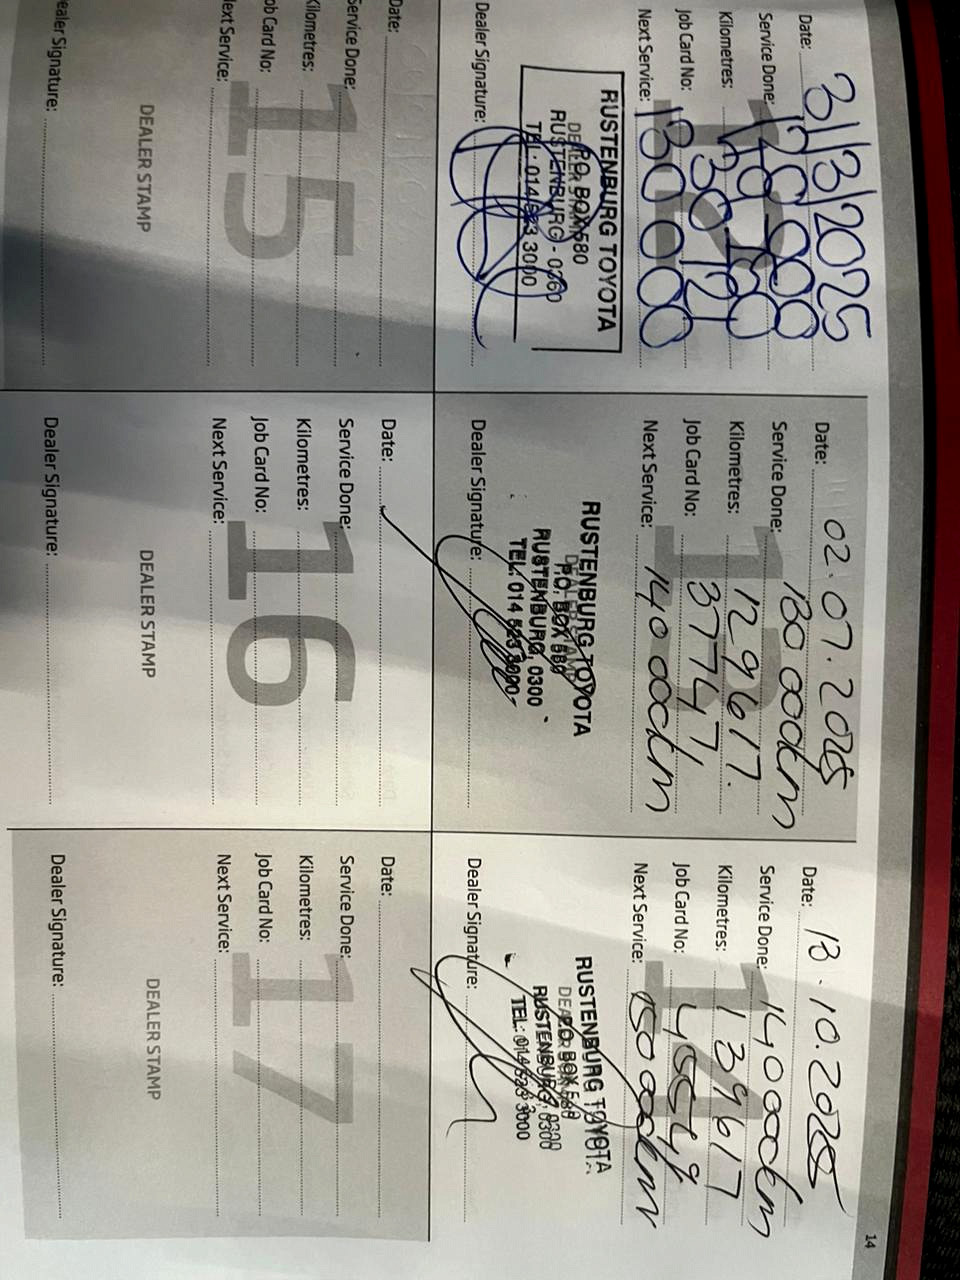 Date: 3/3/2025
Service Done: 120 000
Kilometres:
Job Card No:
Next Service: 130000
12
RUSTENBURG TOYOTA
DEALER STAMP
P.O. BOX 580
RUSTENBURG - 0300
TEL: 014 523 3000
Dealer Signature:
Date: 02.07.2025
Service Done: 130 000km
Kilometres: 129617.
Job Card No: 37747
Next Service: 140 000km
13
RUSTENBURG TOYOTA
DEALER STAMP
P.O. BOX 580
RUSTENBURG, 0300
TEL: 014 523 3000
Dealer Signature:
Date: 13.10.2025
Service Done: 140000km
Kilometres: 139617
Job Card No:
Next Service: 150 000km
14
RUSTENBURG TOYOTA
DEALER STAMP
P.O. BOX 580
RUSTENBURG, 0300
TEL: 014 523 3000
Dealer Signature:
Date:
Service Done:
Kilometres:
Job Card No:
Next Service:
15
DEALER STAMP
Dealer Signature:
Date:
Service Done:
Kilometres:
Job Card No:
Next Service:
16
DEALER STAMP
Dealer Signature:
Date:
Service Done:
Kilometres:
Job Card No:
Next Service:
17
DEALER STAMP
Dealer Signature:
14